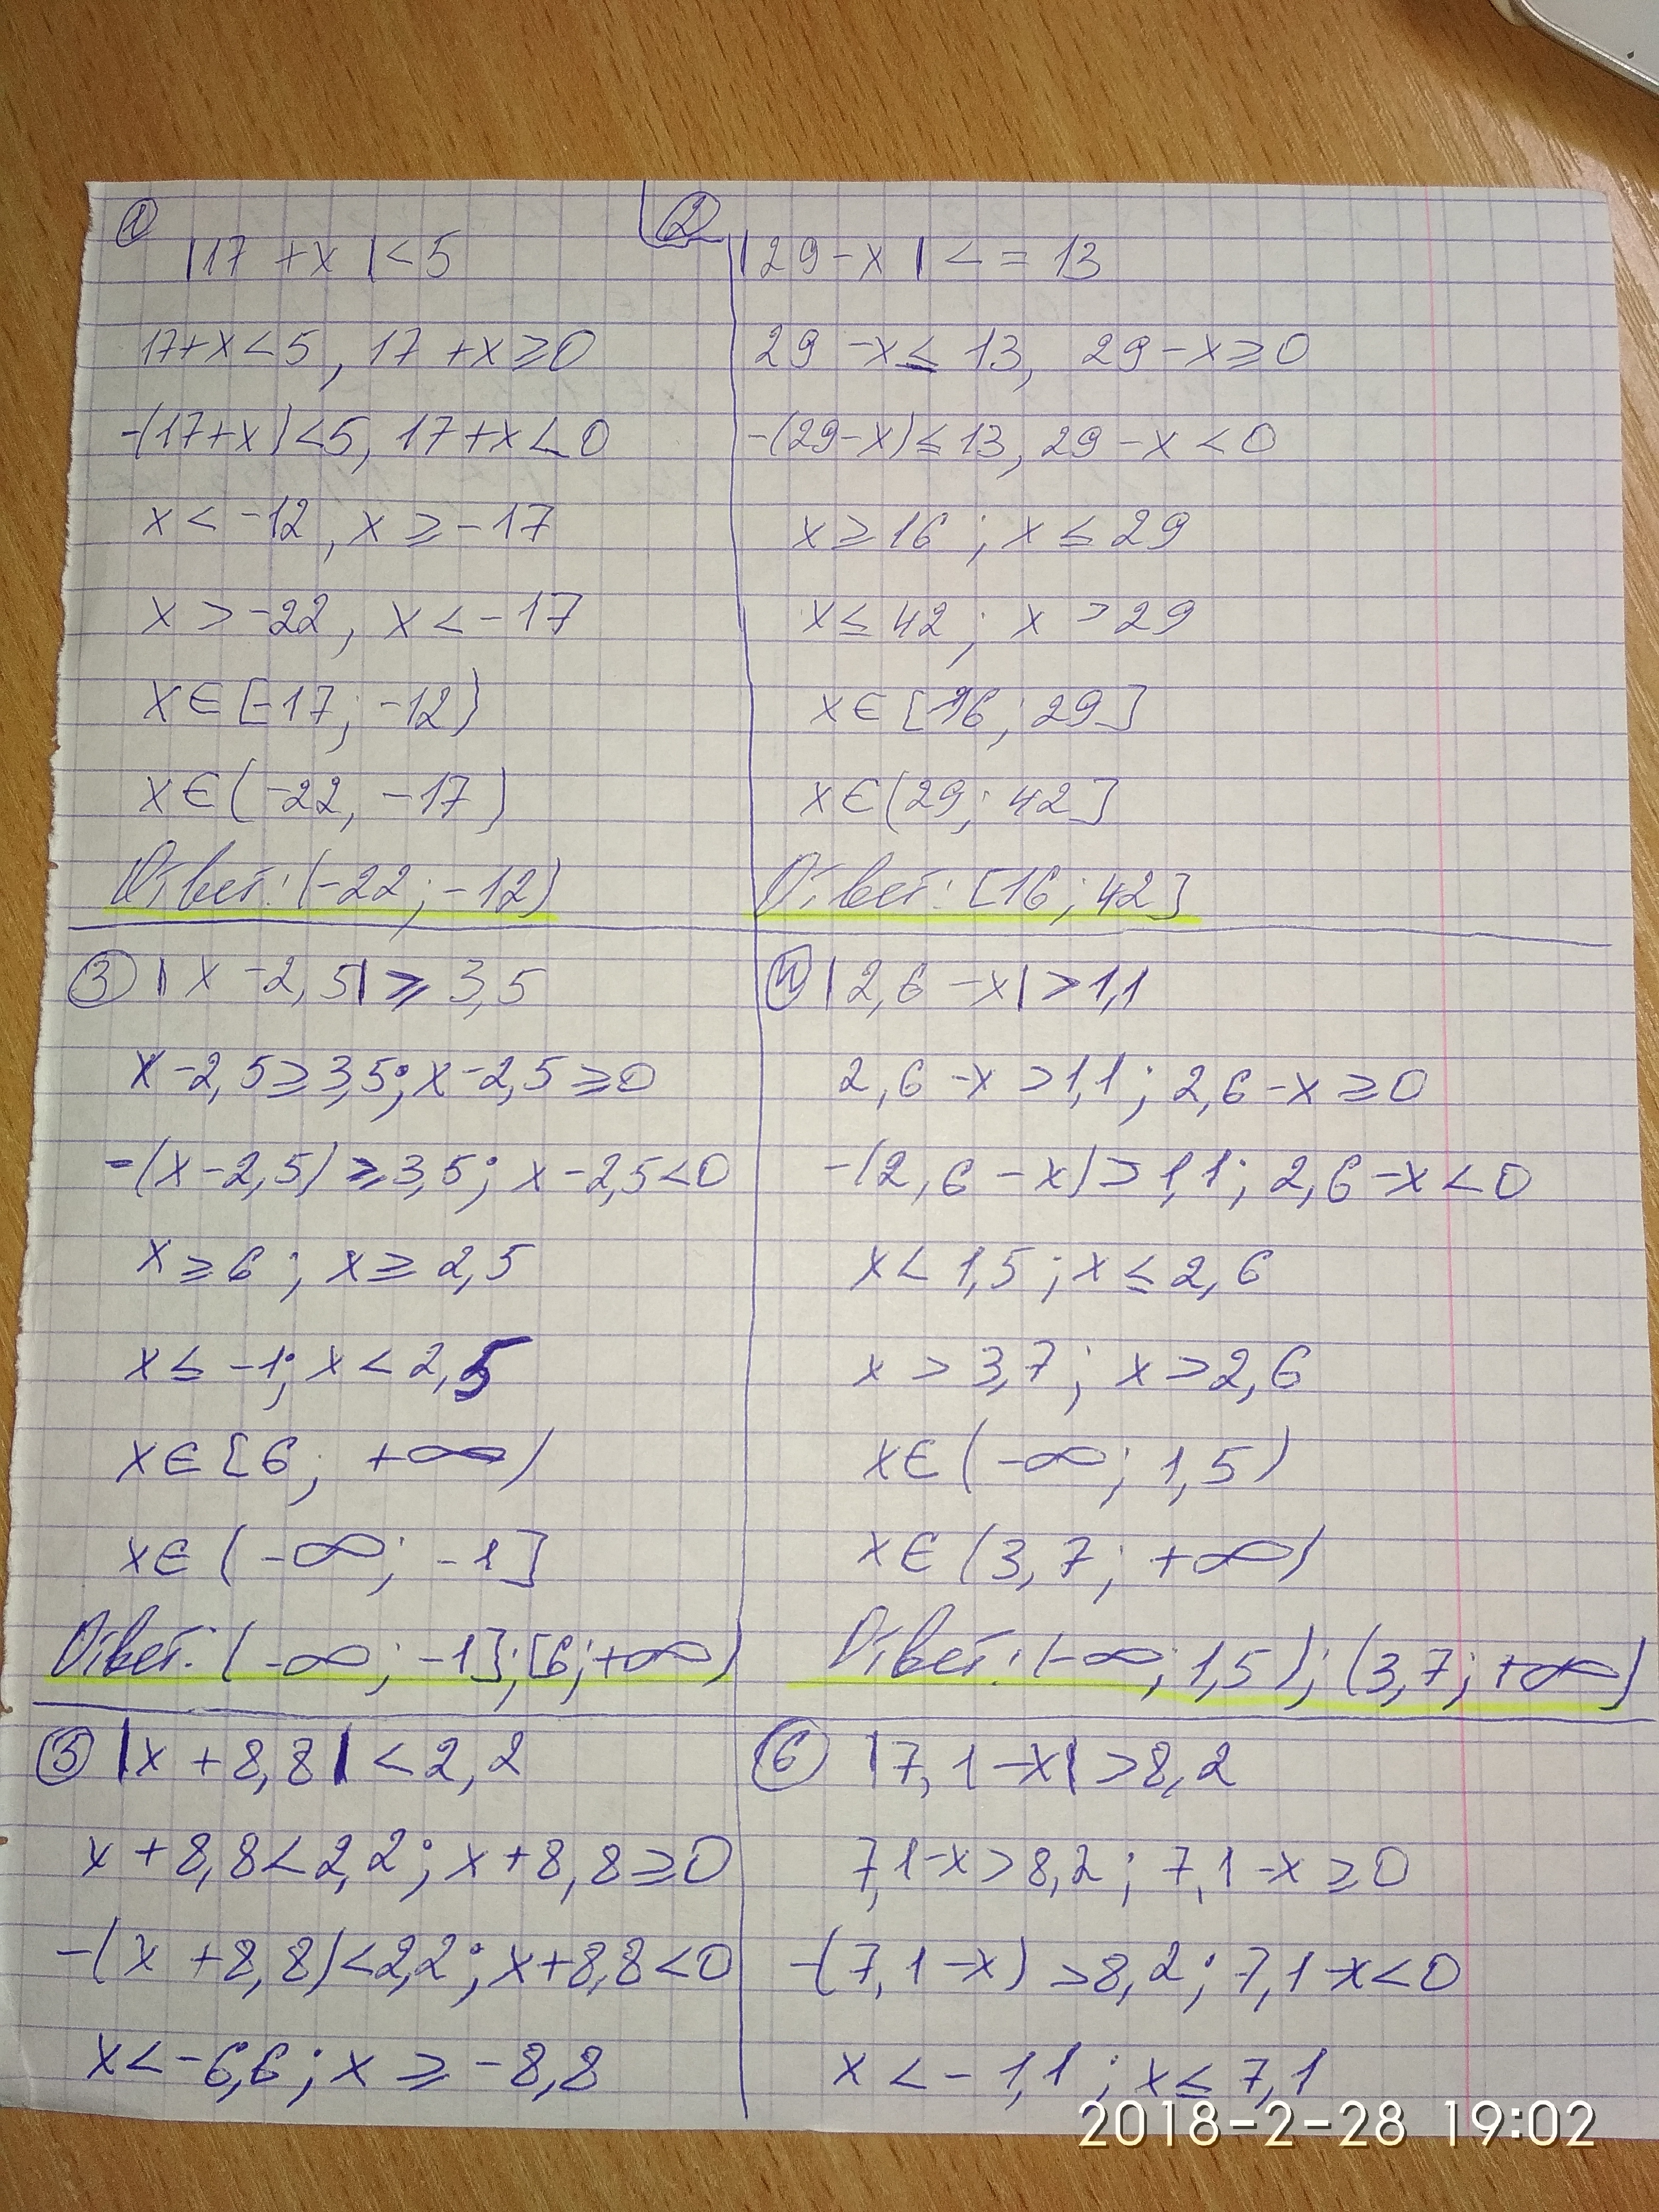 1
|17 + x| < 5
17+x<5, 17+x≥0
-(17+x)<5, 17+x<0
x < -12, x ≥ -17
x > -22, x < -17
x∈[-17; -12)
x∈(-22, -17)
Ответ: (-22; -12)
2
|29-x| <= 13
29-x≤13, 29-x≥0
-(29-x)≤13, 29-x<0
x≥16; x≤29
x≤42; x>29
x∈[16; 29]
x∈(29; 42]
Ответ: [16; 42]
3 |x-2,5| ≥ 3,5
x-2,5≥3,5; x-2,5≥0
-(x-2,5)≥3,5; x-2,5<0
x≥6; x≥2,5
x≤-1; x<2,5
x∈[6; +∞)
x∈(-∞; -1]
Ответ: (-∞; -1]; [6; +∞)
4 |2,6-x|>1,1
2,6-x>1,1; 2,6-x≥0
-(2,6-x)>1,1; 2,6-x<0
x<1,5; x≤2,6
x>3,7; x>2,6
x∈(-∞; 1,5)
x∈(3,7; +∞)
Ответ: (-∞; 1,5); (3,7; +∞)
5 |x+8,8|<2,2
x+8,8<2,2; x+8,8≥0
-(x+8,8)<2,2; x+8,8<0
x<-6,6; x≥-8,8
6 |7,1-x|>8,2
7,1-x>8,2; 7,1-x≥0
-(7,1-x)>8,2; 7,1-x<0
x<-1,1; x≤7,1
2018-2-28 19:02